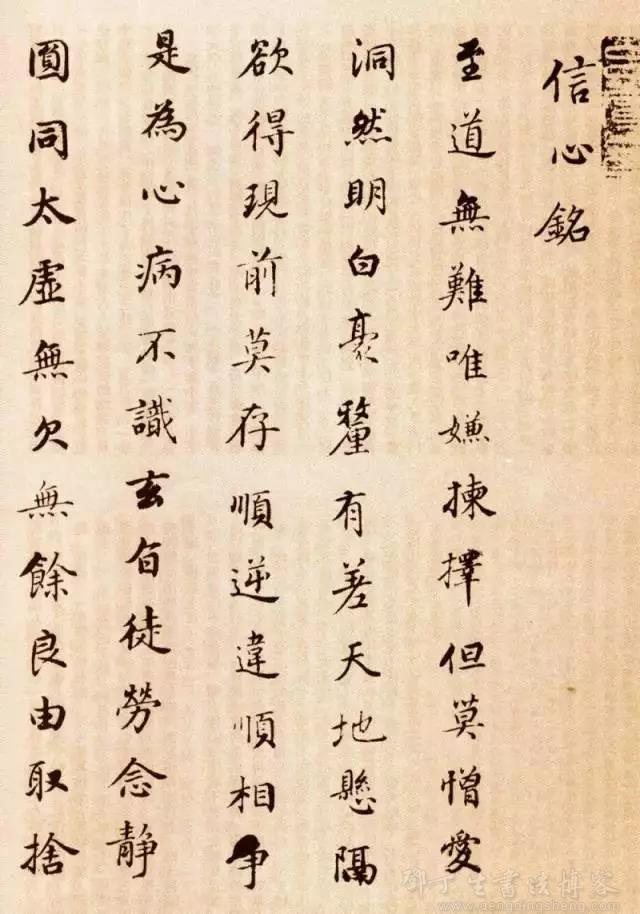 信心銘
至道無難唯嫌揀擇但莫憎愛
洞然明白毫釐有差天地懸隔
欲得現前莫存順逆違順相争
是為心病不識玄旨徒勞念静
圓同太虛無欠無餘良由取捨
邓丁生書法博客
www.dengdingsheng.com